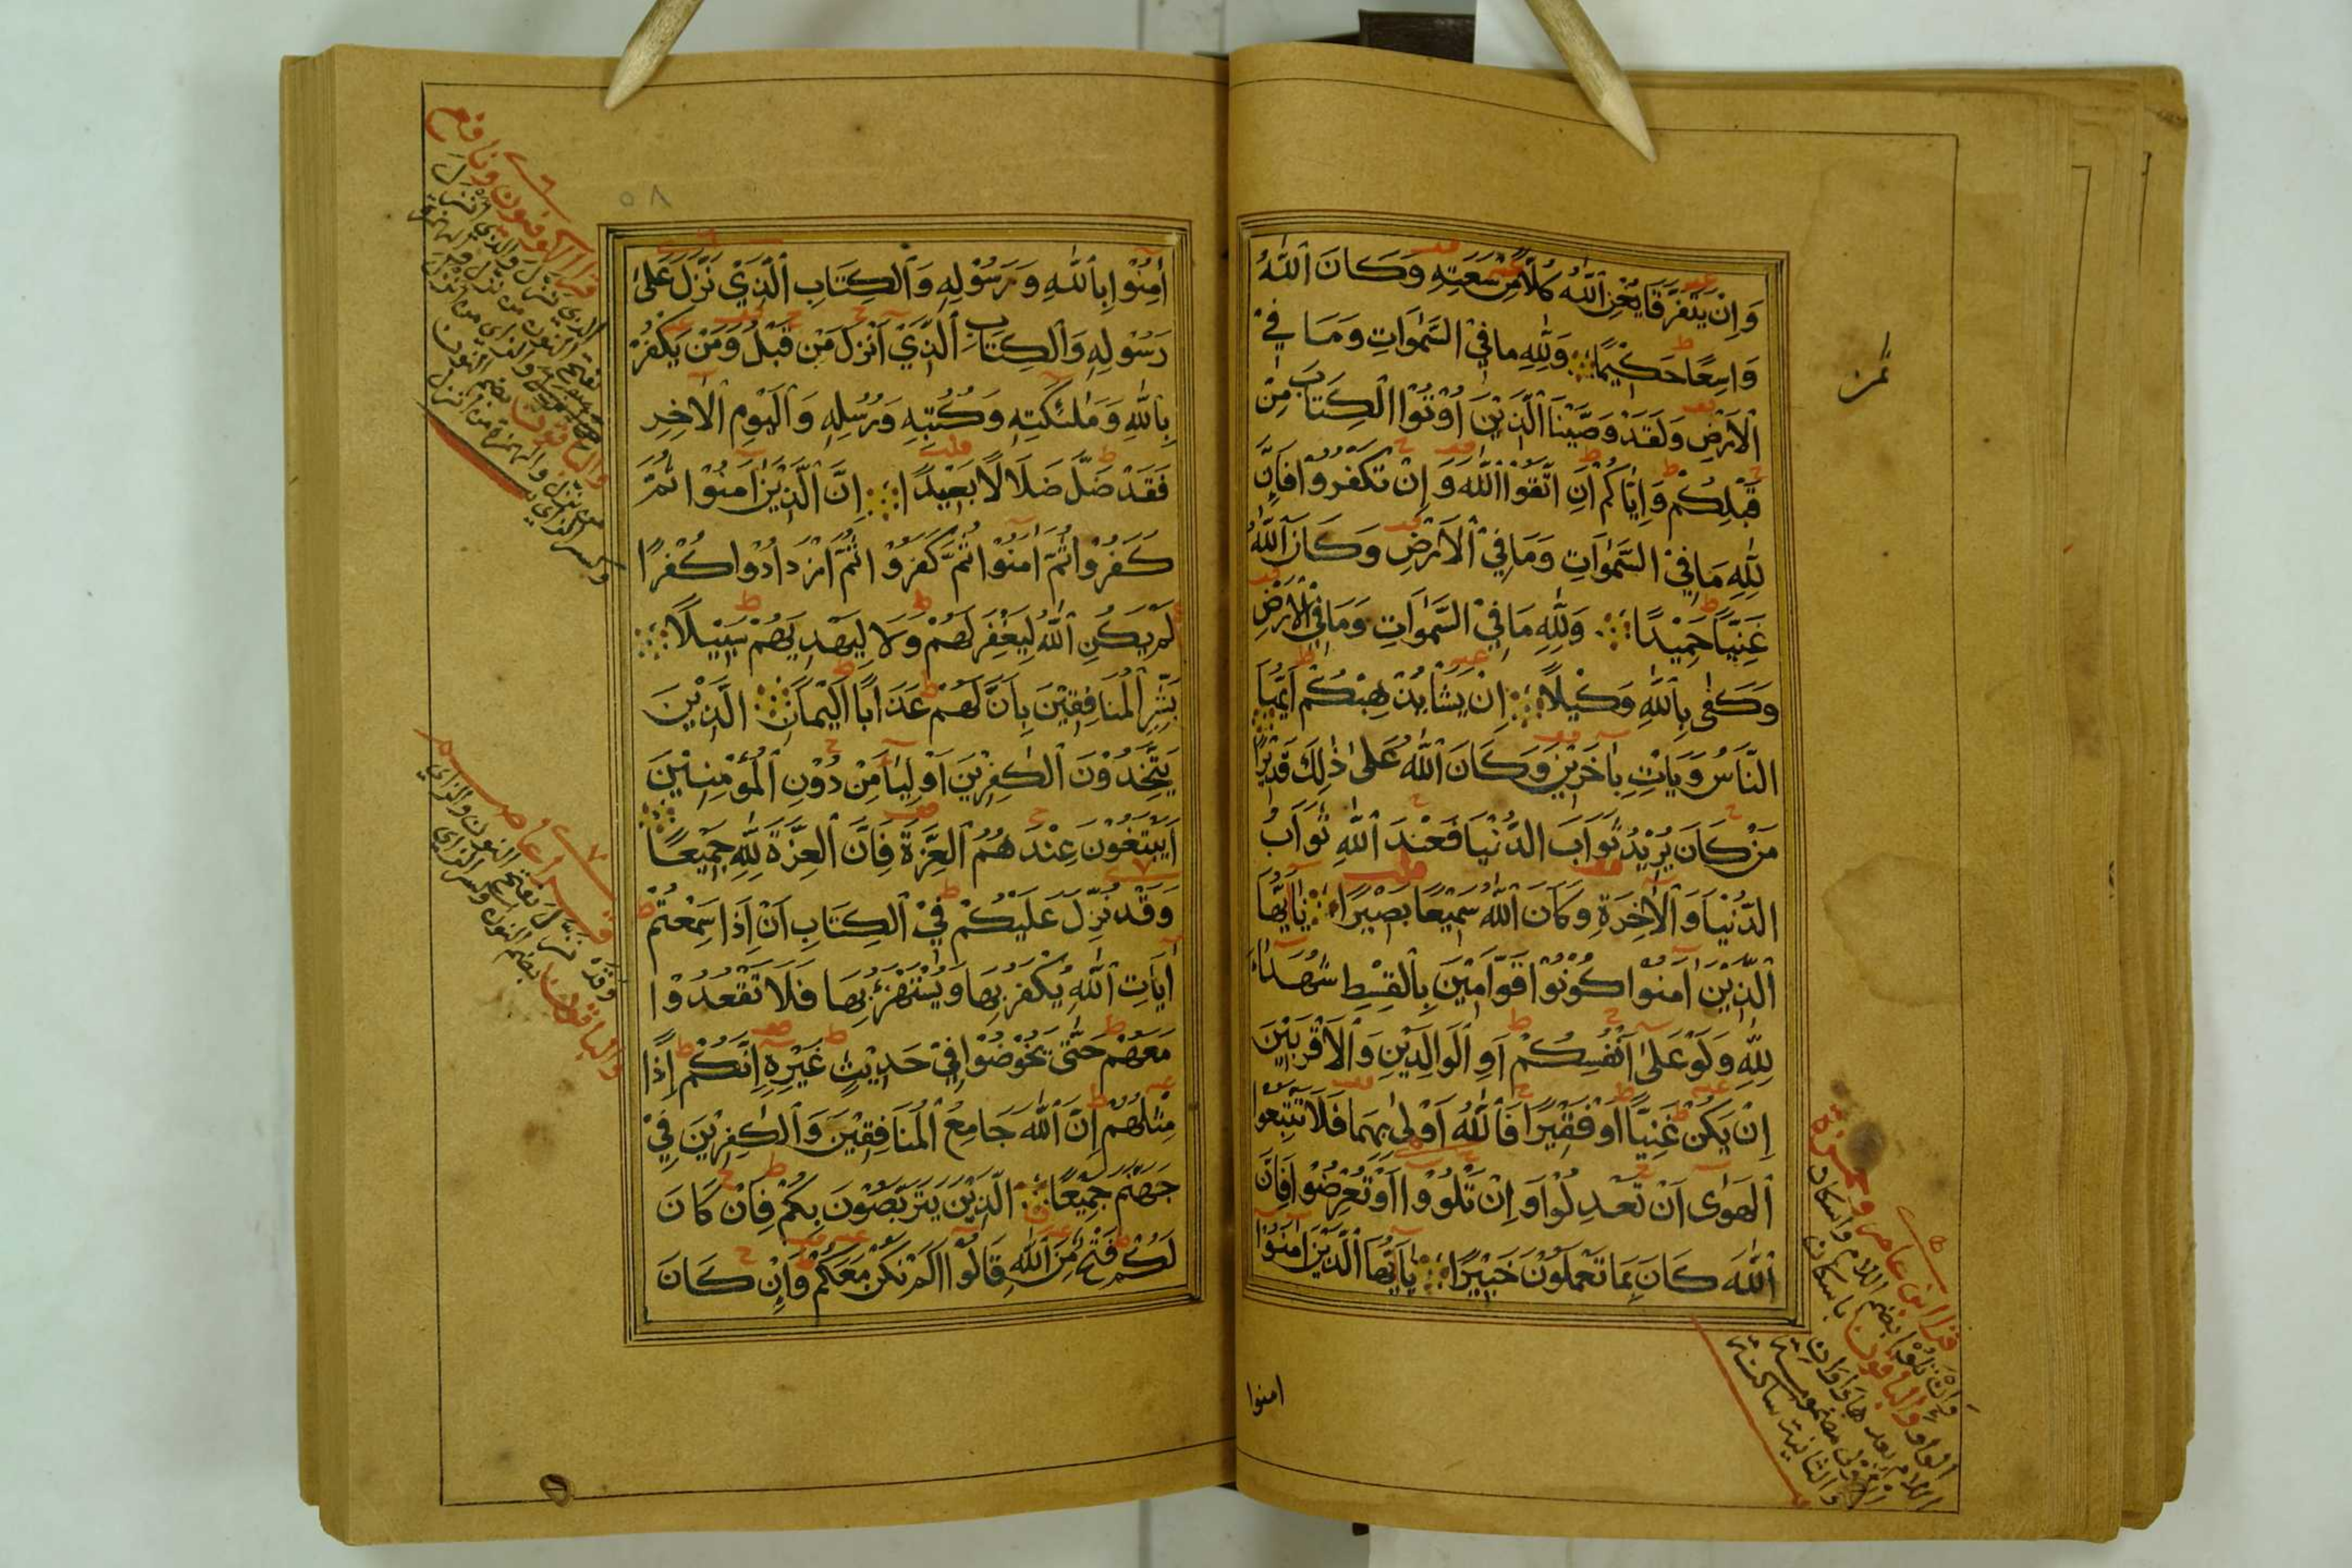 وَاِنْ يَتَفَرَّقَا يُغْنِ ٱللَّهُ كُلًّا مِنْ سَعَتِهِ وَكَانَ ٱللَّهُ
وَاسِعًا حَكِيْمًا وَلِلَّهِ مَا فِيْ السَّمٰوَاتِ وَمَا فِيْ
ٱلْاَرْضِ وَلَقَدْ وَصَّيْنَا ٱلَّذِيْنَ اُوْتُوْا الْكِتَابَ مِنْ
قَبْلِكُمْ وَاِيَّاكُمْ اَنِ اتَّقُوْا ٱللَّهَ وَاِنْ تَكْفُرُوْا فَاِنَّ
لِلَّهِ مَا فِيْ السَّمٰوَاتِ وَمَا فِيْ ٱلْاَرْضِ وَكَانَ ٱللَّهُ
غَنِيًّا حَمِيْدًا وَلِلَّهِ مَا فِيْ السَّمٰوَاتِ وَمَا فِيْ ٱلْاَرْضِ
وَكَفٰى بِٱللَّهِ وَكِيْلًا اِنْ يَشَأْ يُذْهِبْكُمْ اَيُّهَا
النَّاسُ وَيَاْتِ بِاٰخَرِيْنَ وَكَانَ ٱللَّهُ عَلٰى ذٰلِكَ قَدِيْرًا
مَنْ كَانَ يُرِيْدُ ثَوَابَ الدُّنْيَا فَعِنْدَ ٱللَّهِ ثَوَابُ
الدُّنْيَا وَٱلْاٰخِرَةِ وَكَانَ ٱللَّهُ سَمِيْعًا بَصِيْرًا يٰاَيُّهَا
ٱلَّذِيْنَ اٰمَنُوْا كُوْنُوْا قَوَّامِيْنَ بِٱلْقِسْطِ شُهَدَاءَ
لِلَّهِ وَلَوْ عَلٰى اَنْفُسِكُمْ اَوِ ٱلْوَالِدَيْنِ وَٱلْاَقْرَبِيْنَ
اِنْ يَكُنْ غَنِيًّا اَوْ فَقِيْرًا فَٱللَّهُ اَوْلٰى بِهِمَا فَلَا تَتَّبِعُوْا
ٱلْهَوٰى اَنْ تَعْدِلُوْا وَاِنْ تَلْوُوْا اَوْ تُعْرِضُوْا فَاِنَّ
ٱللَّهَ كَانَ بِمَا تَعْمَلُوْنَ خَبِيْرًا يٰاَيُّهَا ٱلَّذِيْنَ اٰمَنُوْا
امنوا
قرا ابن عامر وحمزة
وان تلوا بضم اللام واسكان
الواو والباقون باسكان
اللام بعدها واوان
الاولى مضمومة
والثانية ساكنة
٥٨
اٰمِنُوْا بِٱللَّهِ وَرَسُوْلِهِ وَٱلْكِتَابِ ٱلَّذِيْ نَزَّلَ عَلٰى
رَسُوْلِهِ وَٱلْكِتَابِ ٱلَّذِيْ اَنْزَلَ مِنْ قَبْلُ وَمَنْ يَكْفُرْ
بِٱللَّهِ وَمَلٰئِكَتِهِ وَكُتُبِهِ وَرُسُلِهِ وَٱلْيَوْمِ ٱلْاٰخِرِ
فَقَدْ ضَلَّ ضَلَالًا بَعِيْدًا اِنَّ الَّذِيْنَ اٰمَنُوْا ثُمَّ
كَفَرُوْا ثُمَّ اٰمَنُوْا ثُمَّ كَفَرُوْا ثُمَّ ازْدَادُوْا كُفْرًا
لَمْ يَكُنِ ٱللَّهُ لِيَغْفِرَ لَهُمْ وَلَا لِيَهْدِيَهُمْ سَبِيْلًا
بَشِّرِ ٱلْمُنَافِقِيْنَ بِاَنَّ لَهُمْ عَذَابًا اَلِيْمًا الَّذِيْنَ
يَتَّخِذُوْنَ ٱلْكٰفِرِيْنَ اَوْلِيَاءَ مِنْ دُوْنِ ٱلْمُؤْمِنِيْنَ
اَيَبْتَغُوْنَ عِنْدَهُمُ ٱلْعِزَّةَ فَاِنَّ ٱلْعِزَّةَ لِلَّهِ جَمِيْعًا
وَقَدْ نُزِّلَ عَلَيْكُمْ فِيْ ٱلْكِتَابِ اَنْ اِذَا سَمِعْتُمْ
اٰيَاتِ ٱللَّهِ يُكْفَرُ بِهَا وَيُسْتَهْزَءُ بِهَا فَلَا تَقْعُدُوْا
مَعَهُمْ حَتّٰى يَخُوْضُوْا فِيْ حَدِيْثٍ غَيْرِهِ اِنَّكُمْ اِذًا
مِثْلُهُمْ اِنَّ ٱللَّهَ جَامِعُ ٱلْمُنَافِقِيْنَ وَٱلْكٰفِرِيْنَ فِيْ
جَهَنَّمَ جَمِيْعًا الَّذِيْنَ يَتَرَبَّصُوْنَ بِكُمْ فَاِنْ كَانَ
لَكُمْ فَتْحٌ مِنَ ٱللَّهِ قَالُوْا اَلَمْ نَكُنْ مَعَكُمْ وَاِنْ كَانَ
قرا الكوفيون ونافع
الذي نزل والذي انزل
وقد نزل بفتح النون والزاي
والباقون بضم النون وكسر الزاي